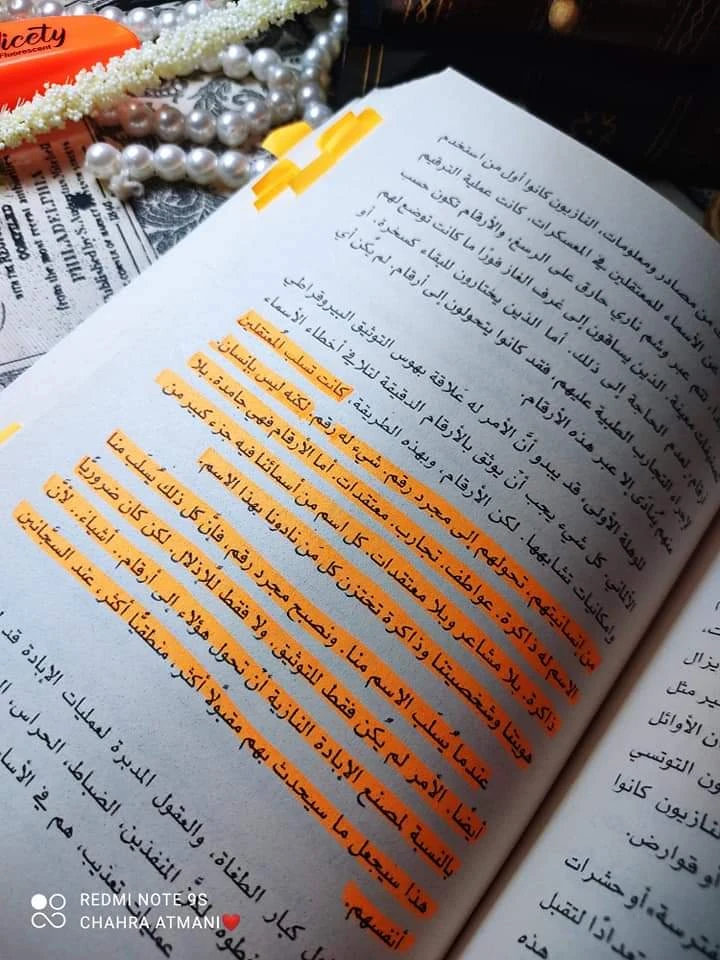 icety
Fluorescent
PHILADELPHIA
from the most recent authorities
COMPILED
من مصادر ومعلومات، النازيون كانوا أول من استخدم
من الأسماء للمعتقلين في المعسكرات، كانت عملية الترقيم
تتم عبر وشم ناري حارق على الرسغ، والأرقام تكون حسب
معينة. الذين يساقون إلى غرف الغاز فورًا ما كانت توضع لهم
أرقام، لعدم الحاجة إلى ذلك. أما الذين يختارون للبقاء كسخرة، أو
لإجراء التجارب الطبية عليهم، فقد كانوا يتحولون إلى أرقام. لم يكن أي
منهم يُنادى إلا عبر هذه الأرقام.
للوهلة الأولى، قد يبدو أنّ الأمر له علاقة بهوس التوثيق البيروقراطي
الألماني، كل شيء يجب أن يوثق بالأرقام الدقيقة لتلافي أخطاء الأسماء
وإمكانيات تشابهها. لكن الأرقام، وبهذه الطريقة، كانت تسلب المعتقلين
من إنسانيتهم. تحولهم إلى مجرد رقم. شيء له رقم. لكنه ليس بإنسان.
الاسم له ذاكرة، عواطف، تجارب، معتقدات. أما الأرقام فهي جامدة. بلا
ذاكرة. بلا مشاعر وبلا معتقدات. كل اسم من أسمائنا فيه جزء كبير من
هويتنا وشخصيتنا وذاكرة تختزن كل من نادونا بهذا الاسم.
عندما يُسلب الاسم منا، ونصبح مجرد رقم فإنّ كل ذلك يُسلب منا
أيضًا. الأمر لم يكن فقط للتوثيق، ولا فقط للإذلال. لكن كان ضروريًّا
بالنسبة لمصنع الإبادة النازية أن تحول هؤلاء إلى أرقام.. أشياء.. لأنّ
هذا سيجعل ما سيحدث بهم مقبولًا أكثر، منطقيًّا أكثر، عند السجّانين
أنفسهم.
كبار الطغاة، والعقول المدبرة لعمليات الإبادة قد
المنفذين، الضباط، الحراس،
تعذيب، هم في
عملية
يزال
ير مثل
ن الأوائل
ون التوتسي
نازيون كانوا
أو قوارض.
أو حشرات
لتقبل
هذه
REDMI NOTE 9S
CHAHRA ATMANI